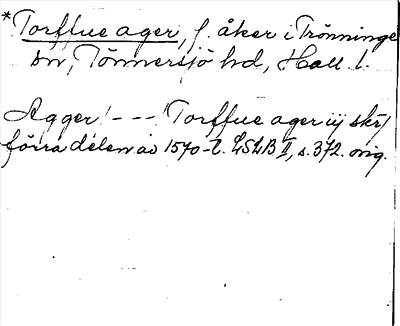 *Torffue ager, f. åker i Trönninge
sn, Tönnersjö hd, Hall. l.
Agger! - - - ! Torffue ager iij skr/
förra delen av 1570-t. LSLB II, s. 372. orig.